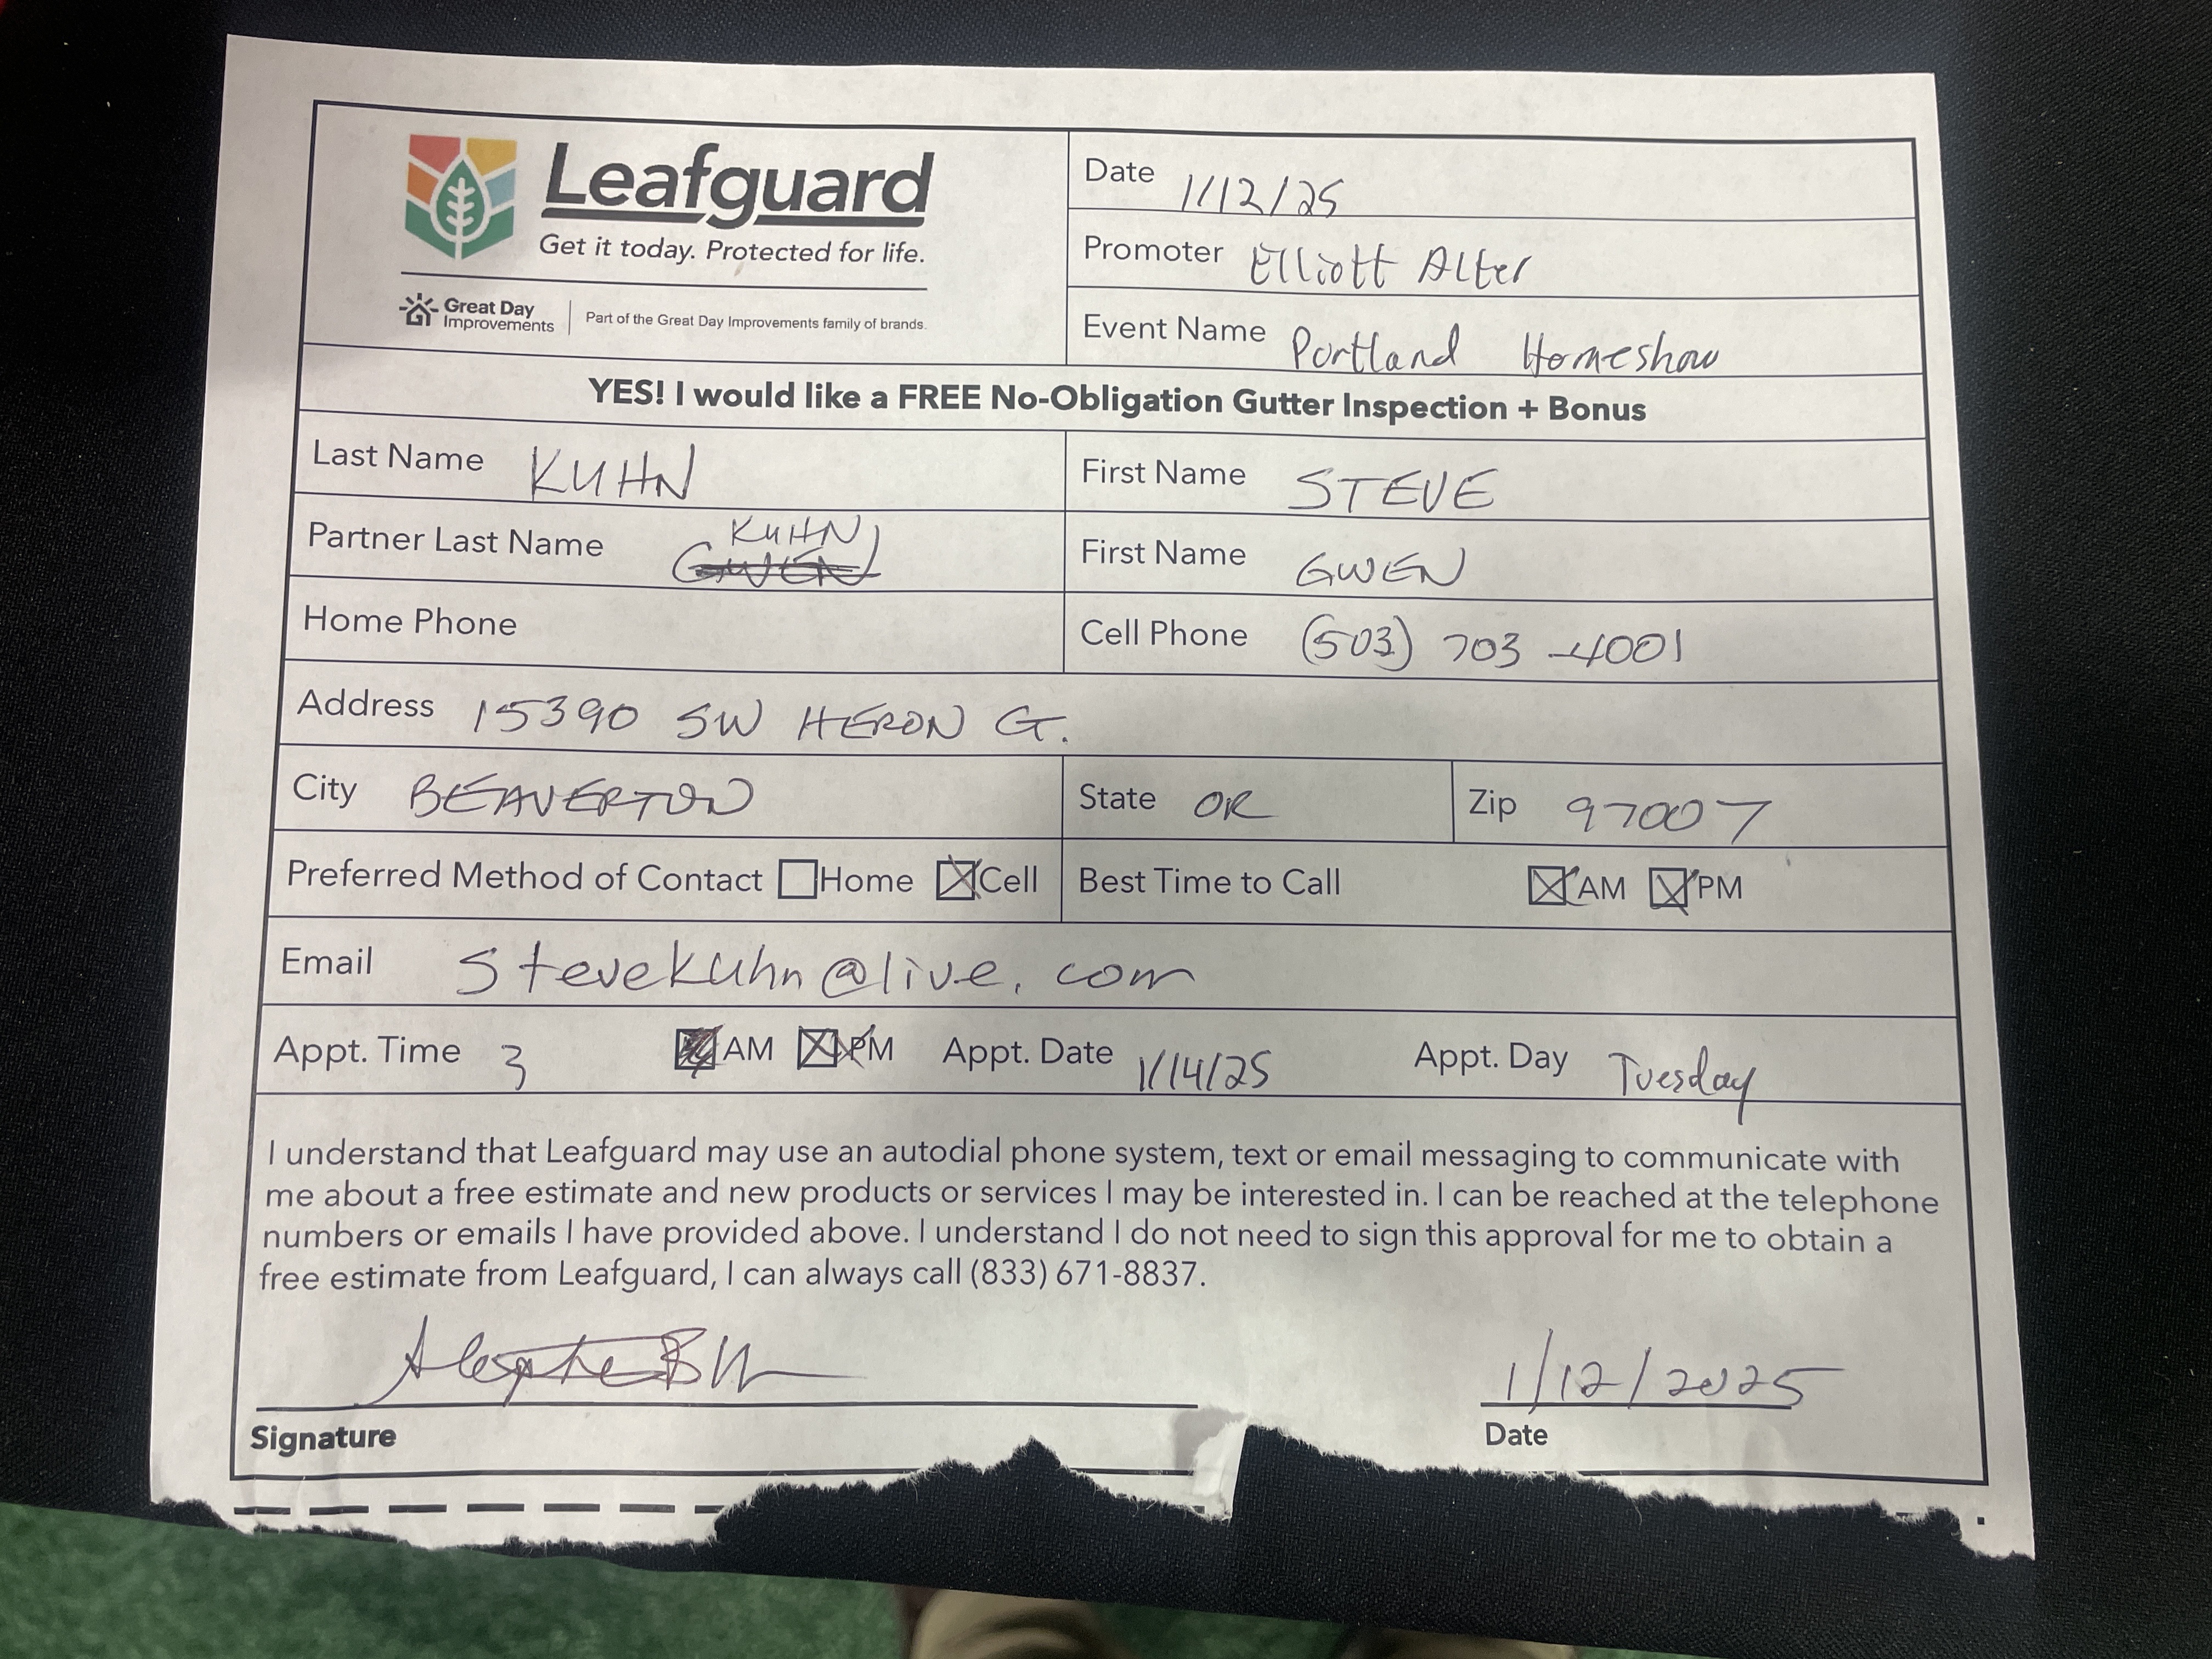 Leafguard
Get it today. Protected for life.
Great Day
Improvements
Part of the Great Day Improvements family of brands.
Date 1/12/25
Promoter Elliott Alter
Event Name Portland Homeshow
YES! I would like a FREE No-Obligation Gutter Inspection + Bonus
Last Name KUHN First Name STEVE
Partner Last Name GWEN KUHN First Name GWEN
Home Phone Cell Phone (503) 703-4001
Address 15390 SW HERON CT.
City BEAVERTON State OR Zip 97007
Preferred Method of Contact Home Cell Best Time to Call AM PM
Email stevekuhn@live.com
Appt. Time 3 AM PM Appt. Date 1/14/25 Appt. Day Tuesday
I understand that Leafguard may use an autodial phone system, text or email messaging to communicate with
me about a free estimate and new products or services I may be interested in. I can be reached at the telephone
numbers or emails I have provided above. I understand I do not need to sign this approval for me to obtain a
free estimate from Leafguard, I can always call (833) 671-8837.
1/12/2025
Signature Date